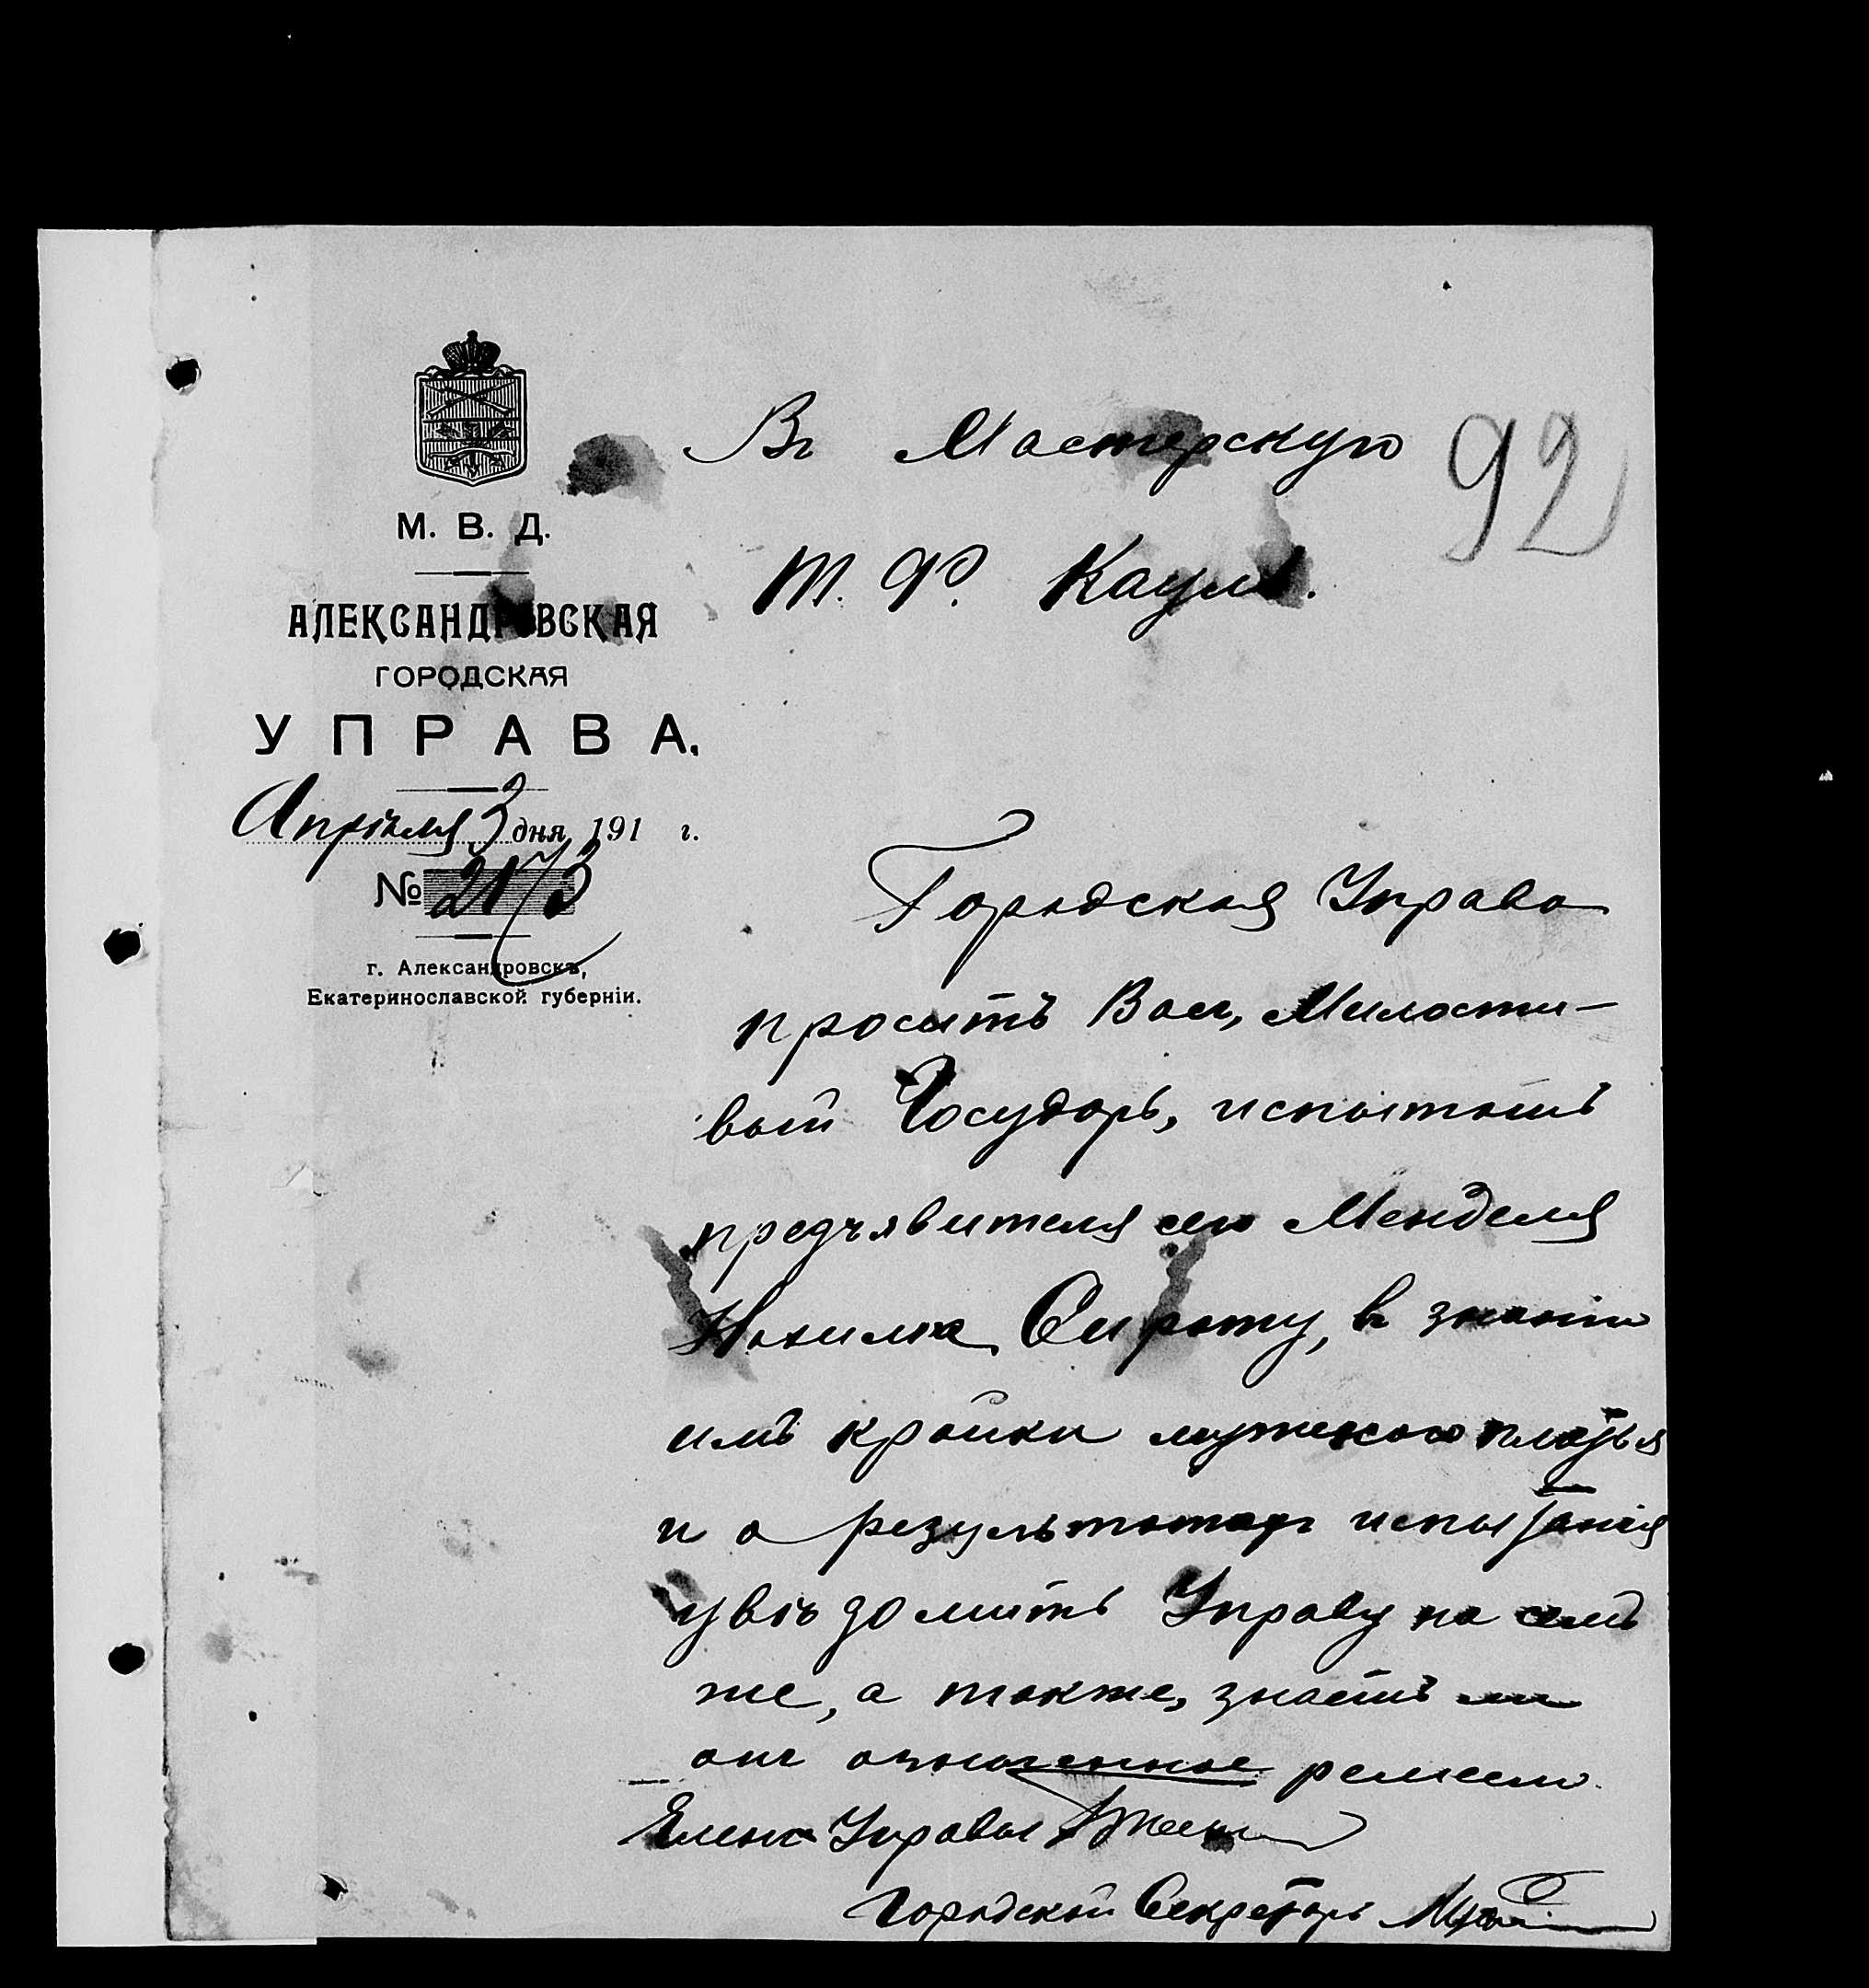 М. В. Д.
АЛЕКСАНДРОВСКАЯ
ГОРОДСКАЯ
УПРАВА.
Апрѣля 3 дня 191 г.
№ 2173
г. Александровскъ,
Екатеринославской губерніи.
92
Въ Мастерскую
Т. Ф. Кауль.
Городская Управа
проситъ Васъ, Милости-
вый Государь, испытать
предъявителя сего Менделя
Сироту, въ знаніи
имъ кройки мужского платья
и о результатахъ испытанія
увѣдомить Управу на семъ
же, а также, знаетъ ли
онъ означенное ремесло.
Членъ Управы
Городской Секретарь